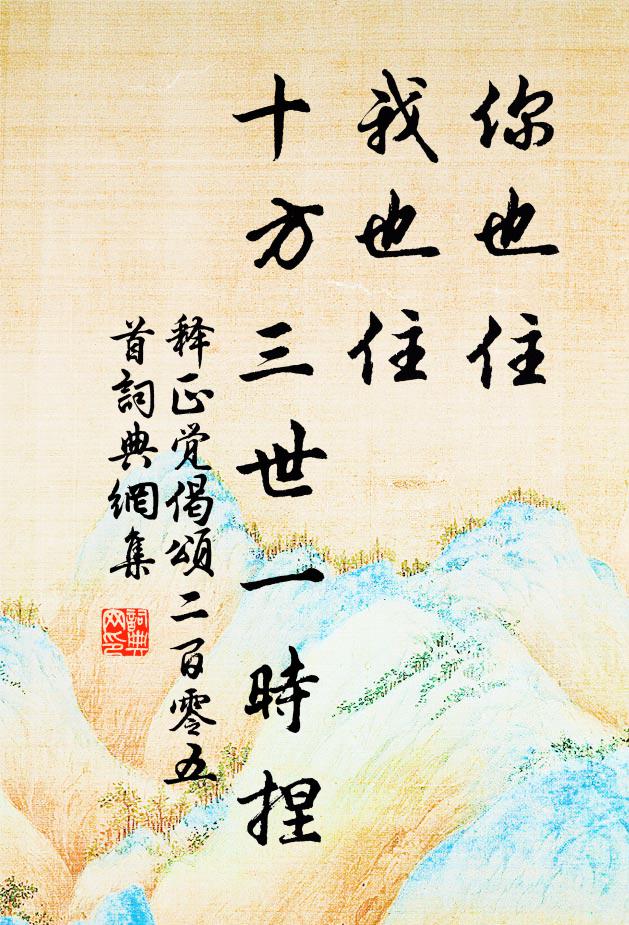 你也住
我也住
十方三世一時捏
释正觉偈頌二百零五
首詞典網集
詞典
网印